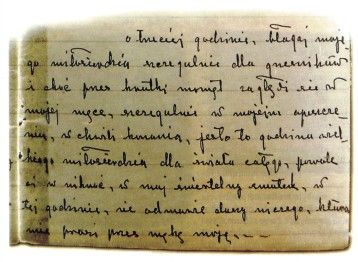 o trzeciej godzinie, błagaj moje-
go miłosierdzia szczególnie dla grzeszników
i choć przez krótki moment zagłęb się w
mojej męce, szczególnie w mojem opuszcze-
niu, w chwili konania, jest to godzina wiel-
kiego miłosierdzia dla świata całego, pozwolę
ci wniknąć, w mój śmiertelny smutek, w
tej godzinie, nie odmówię duszy niczego, która
mnie prosi przez mękę moją, —